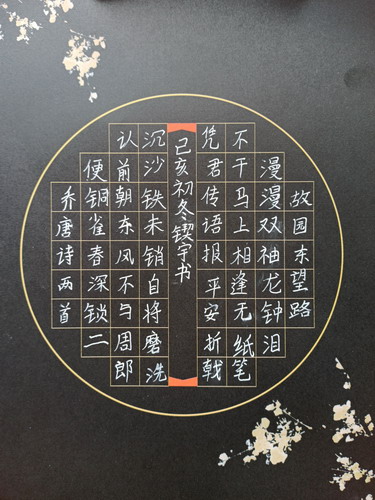 故园东望路
漫漫双袖龙钟泪
不干马上相逢无纸笔
凭君传语报平安折戟
己亥初冬锲宇书
沉沙铁未销自将磨洗
认前朝东风不与周郎
便铜雀春深锁二
乔唐诗两首